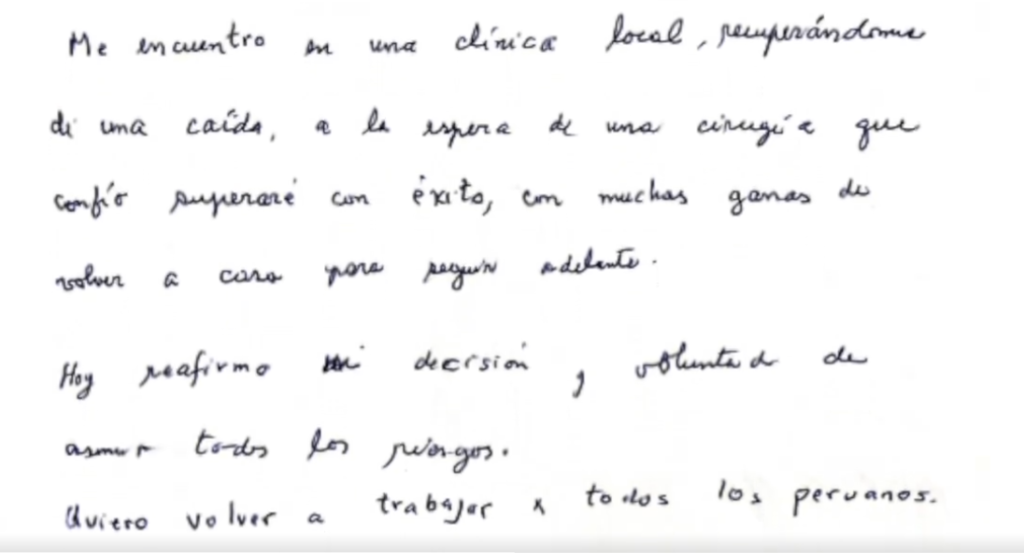 Me encuentro en una clínica local, recuperándome
de una caída, a la espera de una cirugía que
confío superaré con éxito, con muchas ganas de
volver a casa para seguir adelante.
Hoy reafirmo mi decisión y voluntad de
asumir todos los riesgos.
Quiero volver a trabajar x todos los peruanos.